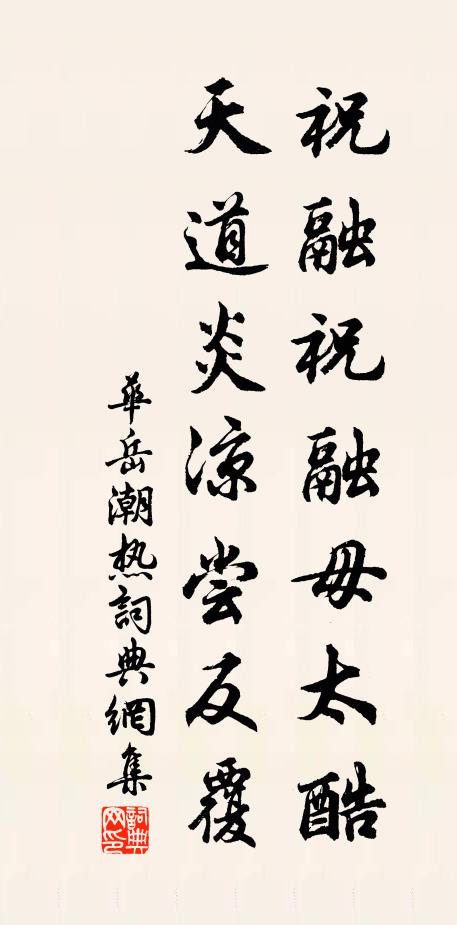 祝融祝融毋太酷
天道炎涼尝反覆
華岳潮热詞典網集
詞典网印